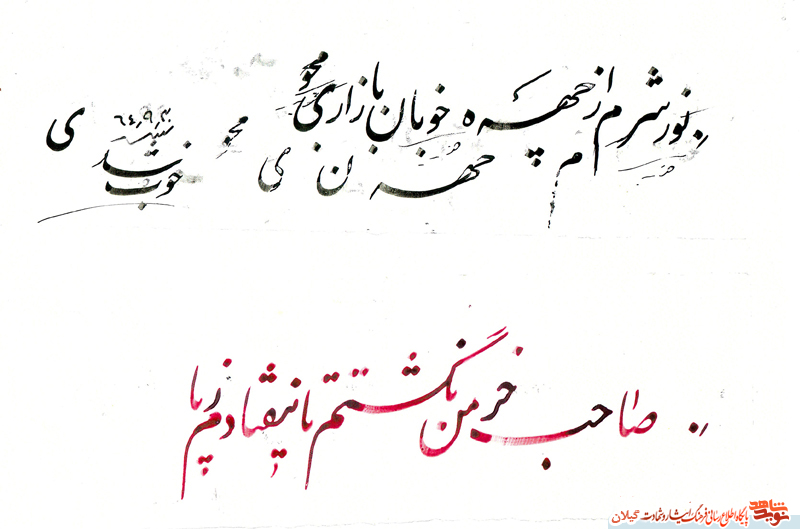 نور شرم از چهرهٔ خوبان بازاری مجو
م چهره ن ی مجو ی
خوب شد
صاحب خرمن نگشتم تا نیفتادم ز پا
نوید شاهد پایگاه اطلاع رسانی فرهنگ ایثار و شهادت گیلان